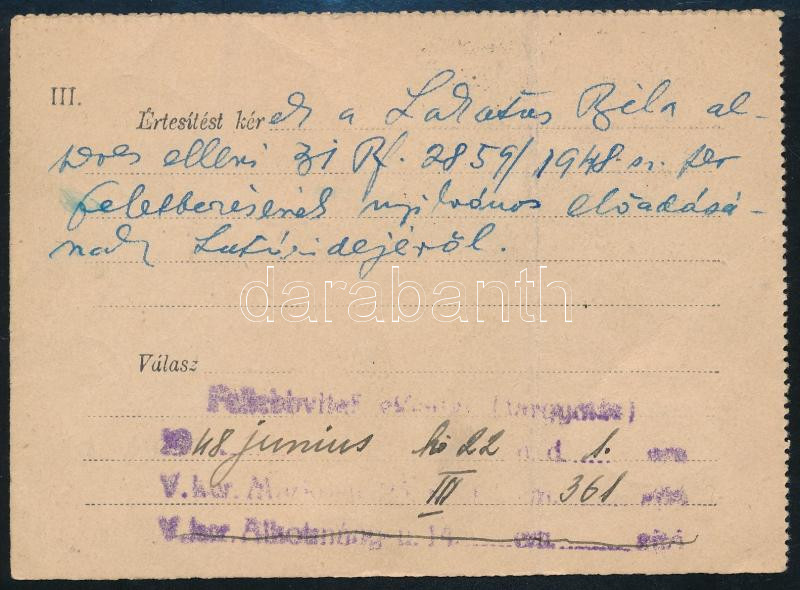 III.
Értesítést kérek a Lakatos Béla al-
peres elleni Pf. 2859/1948. sz. per
nyilvános előadásá-
nak határidejéről.
darabanth
Válasz
Fellebbviteli
1948 junius hó 22 d. 1.
V. ker. III 361
V. ker. Alkotmány u. 14. ajtó